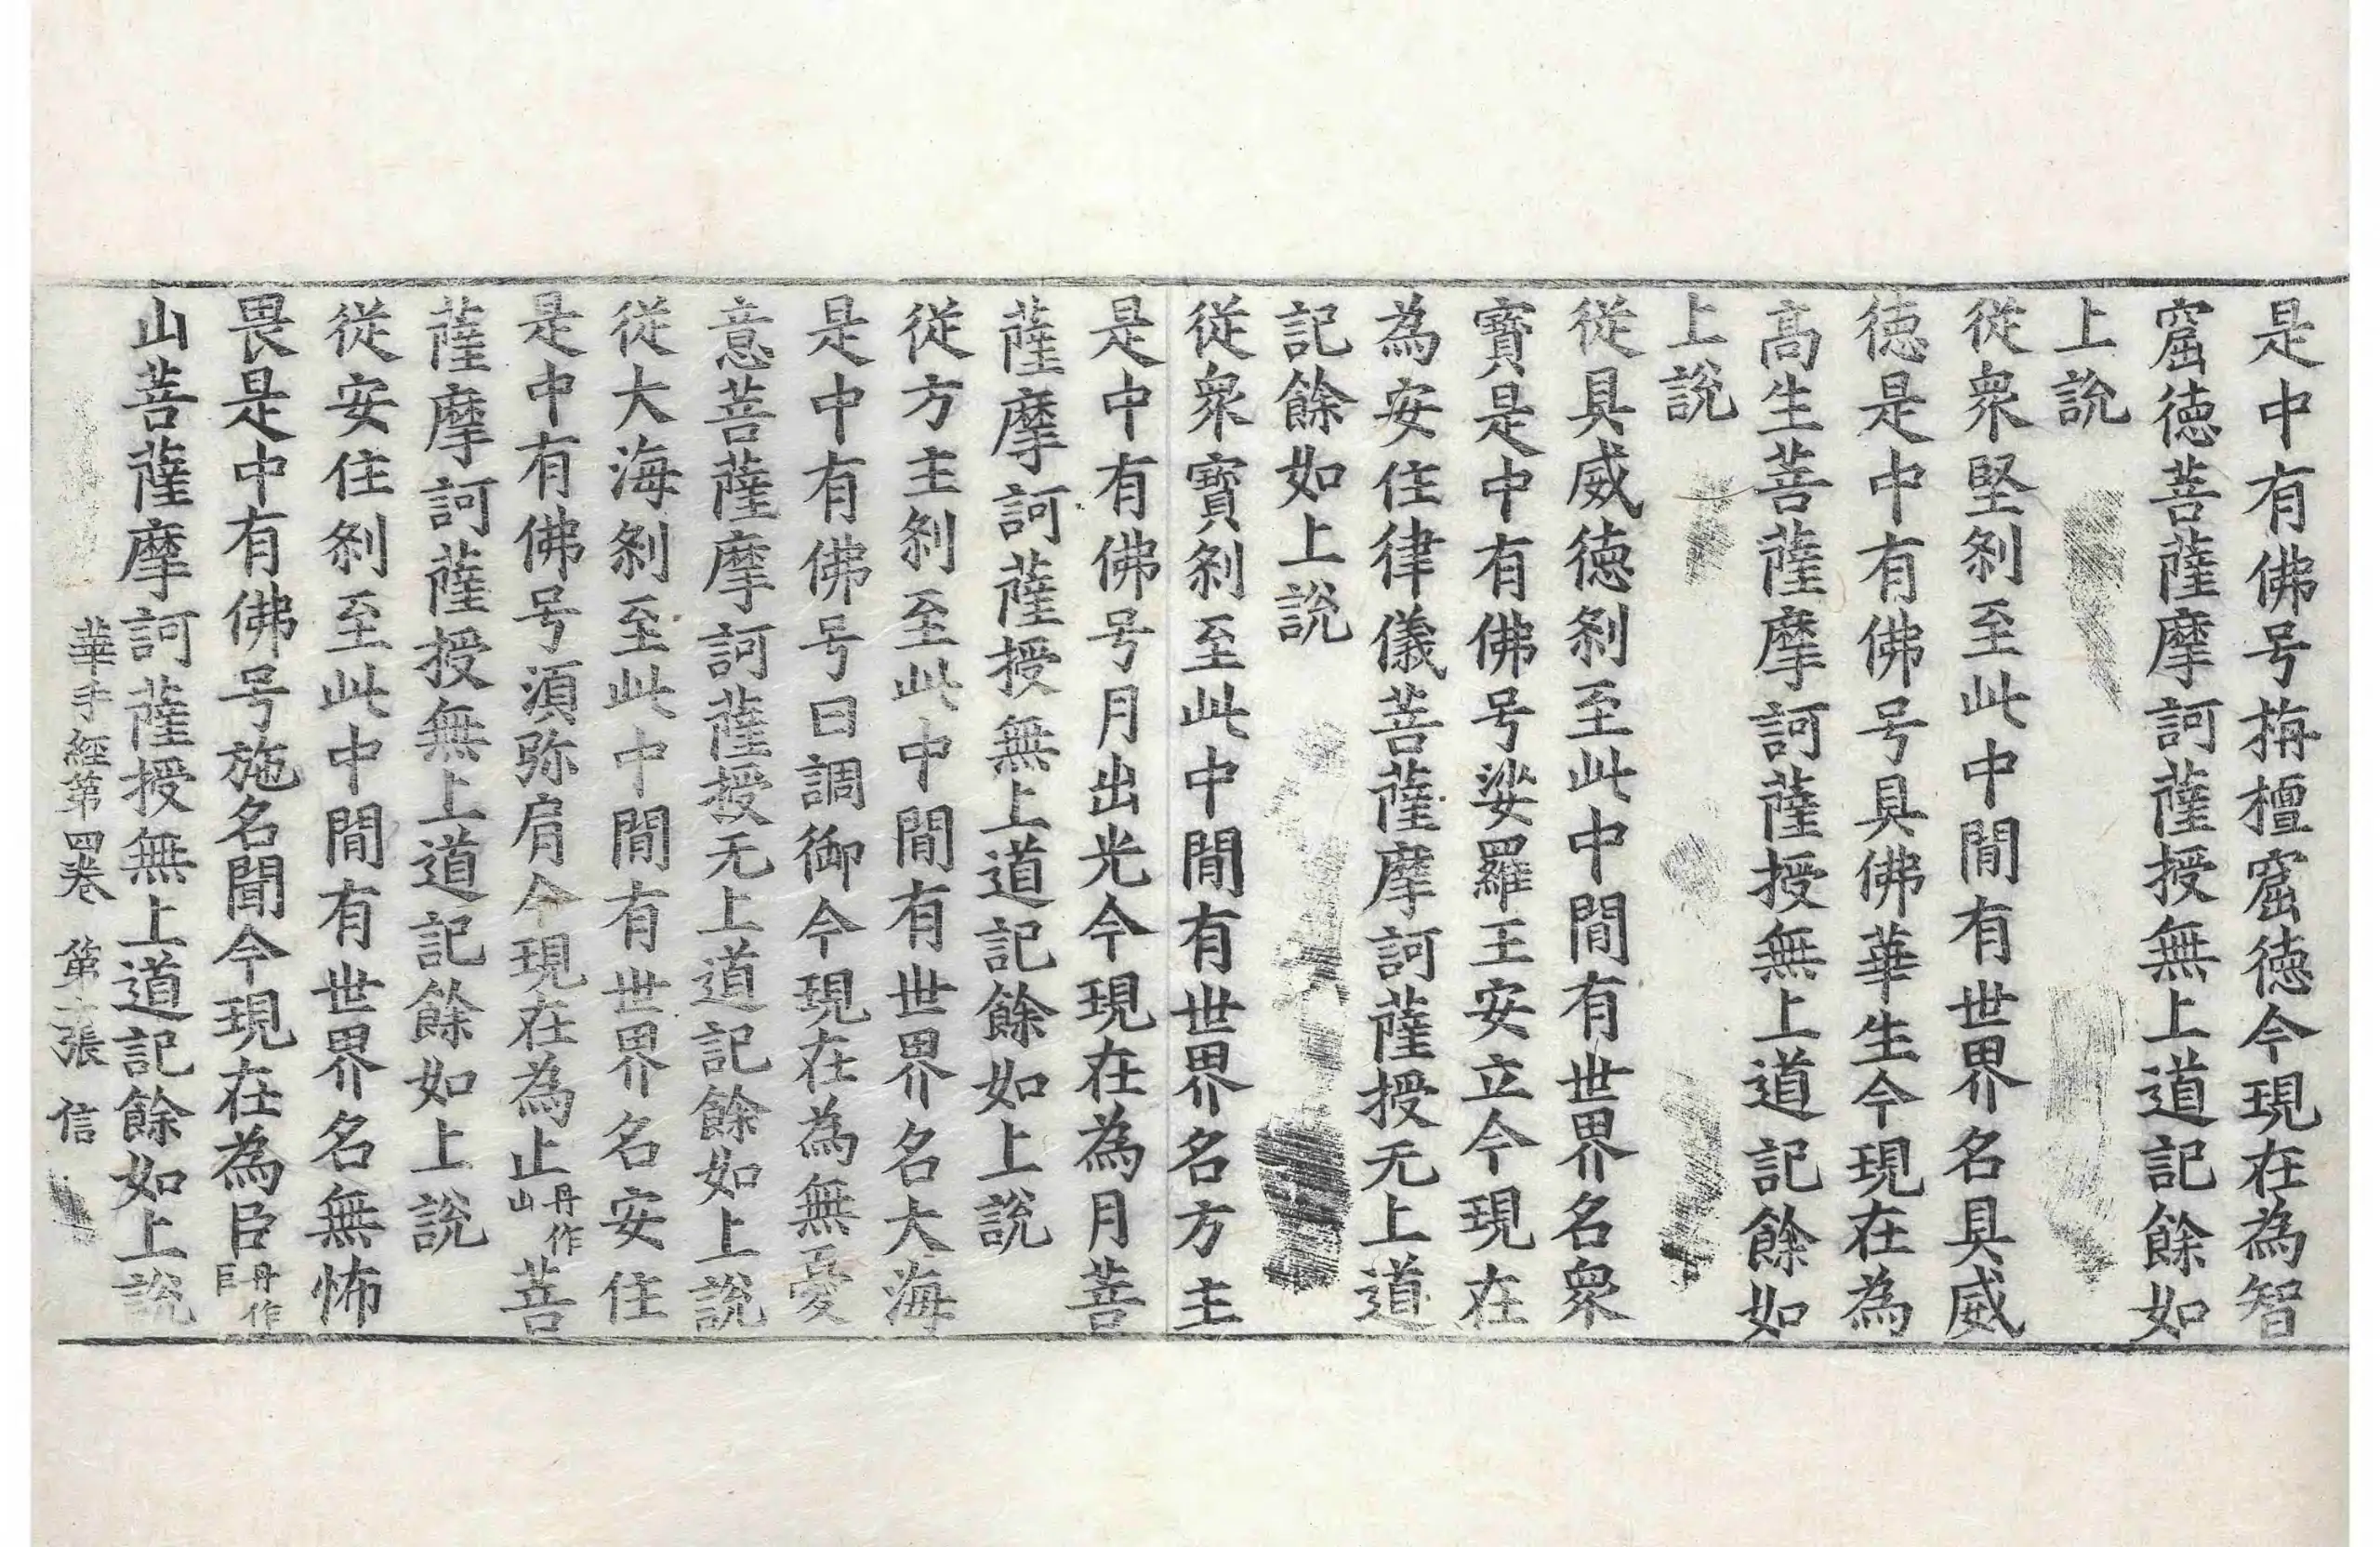 是中有佛号栴檀窟徳今現在為智
窟徳菩薩摩訶薩授無上道記餘如
上說
從衆堅剎至此中間有世界名具威
徳是中有佛号具佛華生今現在為
高生菩薩摩訶薩授無上道記餘如
上說
從具威徳剎至此中間有世界名衆
寶是中有佛号娑羅王安立今現在
為安住律儀菩薩摩訶薩授无上道
記餘如上說
從衆寶剎至此中間有世界名方主
是中有佛号月出光今現在為月菩
薩摩訶薩授無上道記餘如上說
從方主剎至此中間有世界名大海
是中有佛号曰調御今現在為無憂
意菩薩摩訶薩授无上道記餘如上說
從大海剎至此中間有世界名安住
是中有佛号須弥肩今現在為止丹作山菩
薩摩訶薩授無上道記餘如上說
從安住剎至此中間有世界名無怖
畏是中有佛号施名聞今現在為臣丹作巨
山菩薩摩訶薩授無上道記餘如上說
華手經第四卷 第 張 信